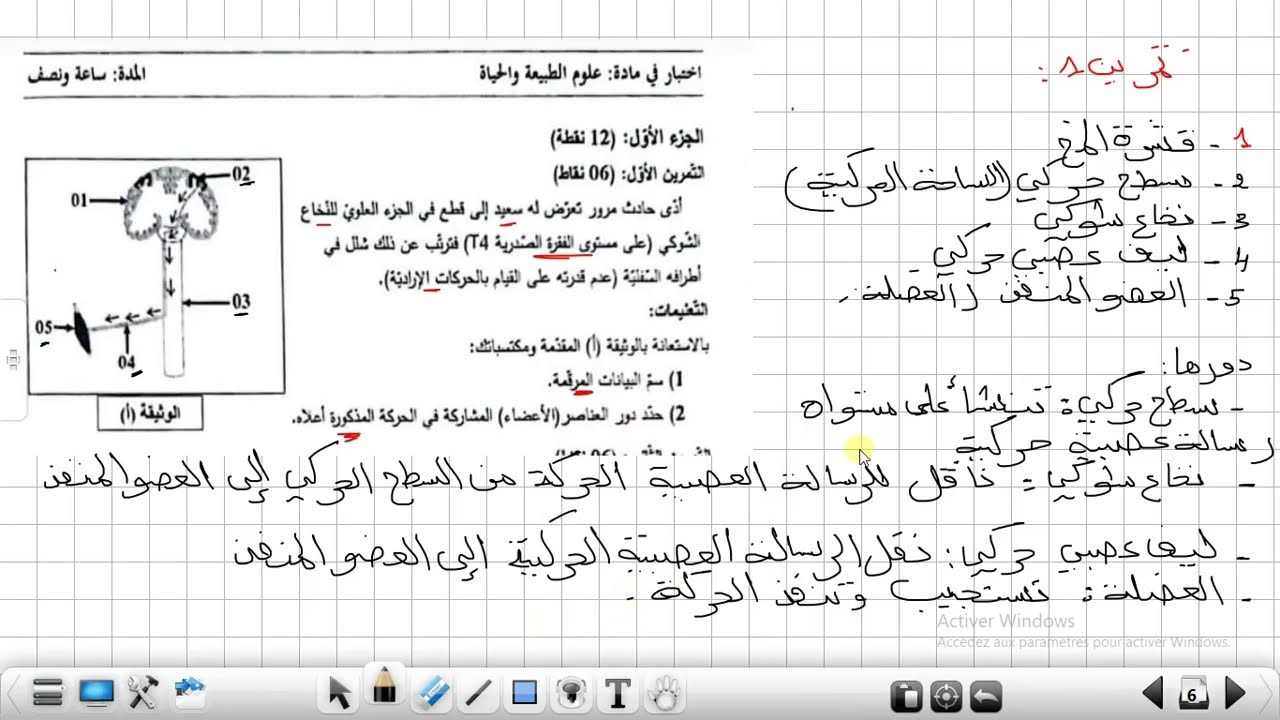 اختبار في مادة: علوم الطبيعة والحياة
المدة: ساعة ونصف
الجزء الأوّل: (12 نقطة)
التمرين الأوّل: (06 نقاط)
أدّى حادث مرور تعرّض له سعيد إلى قطع في الجزء العلويّ للنّخاع
الشّوكي (على مستوى الفقرة الصّدرية T4) فترتّب عن ذلك شلل في
أطرافه السّفليّة (عدم قدرته على القيام بالحركات الإراديّة).
التّعليمات:
بالاستعانة بالوثيقة (أ) المقدّمة ومكتسباتك:
1) سمّ البيانات المرقّمة.
2) حدّد دور العناصر (الأعضاء) المشاركة في الحركة المذكورة أعلاه.
01
02
03
04
05
الوثيقة (أ)
تمرين 1:
1- قشرة المخ
2- سطح حركي (الساحة الحركية)
3- نخاع شوكي
4- ليف عصبي حركي
5- العضو المنفذ (العضلة.
دورها:
- سطح حركي: تنشأ على مستواه
رسالة عصبية حركية
- نخاع شوكي: ناقل للرسالة العصبية الحركة من السطح الحركي إلى العضو المنفذ
- ليف عصبي حركي: نقل الرسالة العصبية الحركية إلى العضو المنفذ
- العضلة: تستجيب وتنفذ الحركة.
Activer Windows
Accédez aux paramètres pour activer Windows.
6